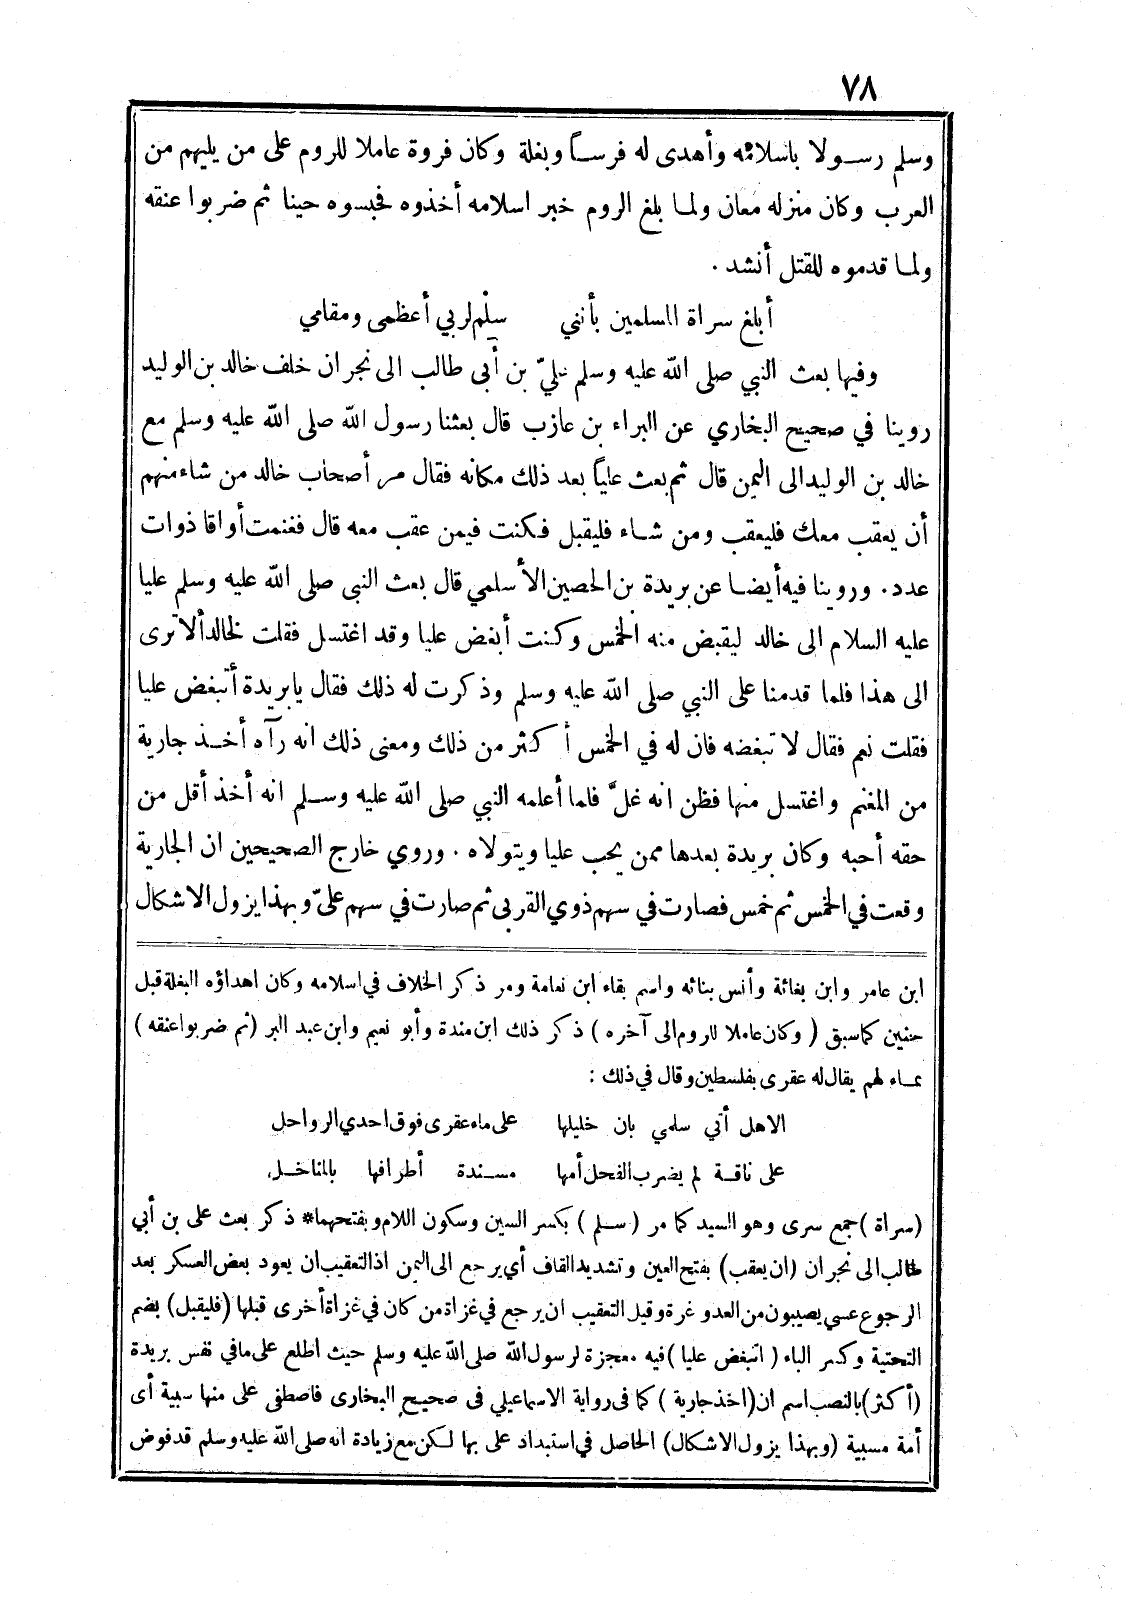 ٧٨
وسلم رسولا باسلامه وأهدى له فرساً وبغلة وكان فروة عاملا للروم على من يليهم من
العرب وكان منزله معان ولما بلغ الروم خبر اسلامه أخذوه فحبسوه حينا ثم ضربوا عنقه
ولما قدموه للقتل أنشد .
أبلغ سراة المسلمين بأنني سِلْم لربي أعظمى ومقامي
وفيها بعث النبي صلى الله عليه وسلم عليّ بن أبى طالب الى نجران خلف خالد بن الوليد
روينا في صحيح البخاري عن البراء بن عازب قال بعثنا رسول الله صلى الله عليه وسلم مع
خالد بن الوليد الى اليمن قال ثم بعث علياً بعد ذلك مكانه فقال مر أصحاب خالد من شاء منهم
أن يعقب معك فليعقب ومن شاء فليقبل فكنت فيمن عقب معه قال فغنمت أواقا ذوات
عدد . وروينا فيه أيضا عن بريدة بن الحصين الأسلمي قال بعث النبى صلى الله عليه وسلم عليا
عليه السلام الى خالد ليقبض منه الخمس وكنت أبغض عليا وقد اغتسل فقلت لخالد ألا ترى
الى هذا فلما قدمنا على النبي صلى الله عليه وسلم وذكرت له ذلك فقال يا بريدة أتبغض عليا
فقلت نعم فقال لا تبغضه فان له في الخمس أكثر من ذلك ومعنى ذلك انه رآه أخذ جارية
من المغنم واغتسل منها فظن انه غلَّ فلما أعلمه النبي صلى الله عليه وسلم انه أخذ أقل من
حقه أحبه وكان بريدة بعدها ممن يحب عليا ويتولاه . وروي خارج الصحيحين ان الجارية
وقعت في الخمس ثم خمس فصارت في سهم ذوي القربى ثم صارت في سهم علىّ وبهذا يزول الاشكال
ابن عامر وابن بغاثة وأنس بنائه واسم بقاء ابن نعامة ومر ذكر الخلاف في اسلامه وكان اهداؤه البغلة قبل
حنين كما سبق ( وكان عاملا للروم الى آخره ) ذكر ذلك ابن مندة وأبو نعيم وابن عبد البر (ثم ضربوا عنقه)
بماء لهم يقال له عقرى بفلسطين وقال في ذلك :
الا هل أتي سلمي بان خليلها على ماء عقرى فوق احدي الرواحل
على ناقة لم يضرب الفحل أمها مسندة أطرافها بالمناخل
(سراة) جمع سرى وهو السيد كما مر ( سلم ) بكسر السين وسكون اللام وبفتحهما* ذكر بعث على بن أبي
طالب الى نجران (ان يعقب) بفتح العين وتشديد القاف أي يرجع الى اليمن اذ التعقيب ان يعود بعض العسكر بعد
الرجوع عسي يصيبون من العدو غرة وقيل التعقيب ان يرجع في غزاة من كان في غزاة أخرى قبلها (فليقبل) بضم
التحتية وكسر الباء ( اتبغض عليا ) فيه معجزة لرسول الله صلى الله عليه وسلم حيث اطلع على مافي نفس بريدة
(أكثر) بالنصب اسم ان (اخذ جارية ) كما فى رواية الاسماعيلي فى صحيح البخارى فاصطفى على منها سبية أى
أمة مسبية (وبهذا يزول الاشكال) الحاصل في استبداد على بها لكن مع زيادة انه صلى الله عليه وسلم قد فوض